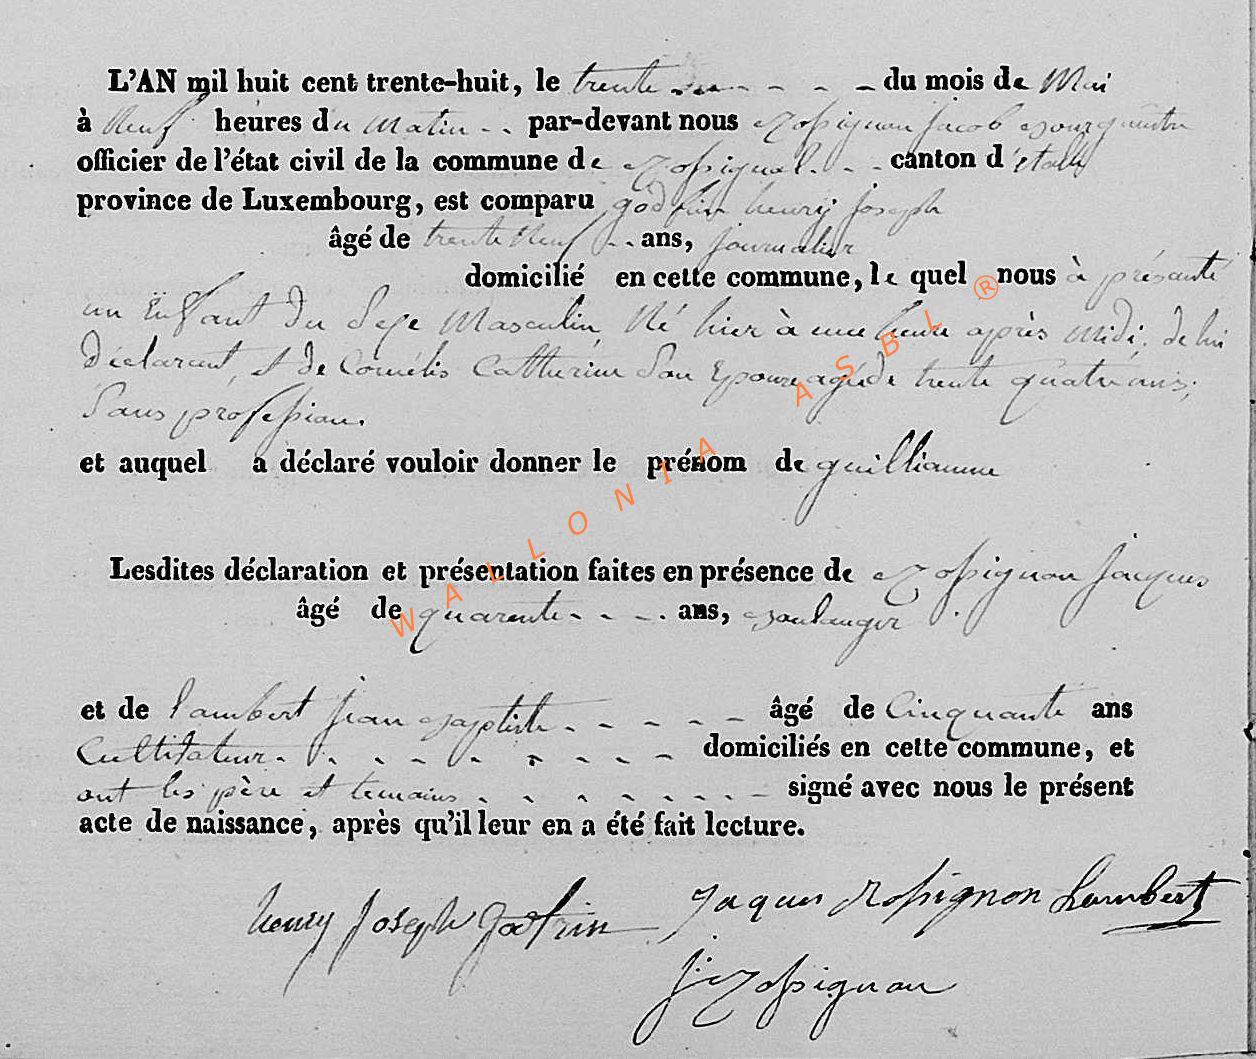 L'AN mil huit cent trente-huit, le trente - - - - du mois de Mai
à Neuf heures du Matin - - par-devant nous Rossignon Jacob Bourguestre
officier de l'état civil de la commune de Rossignol - - canton d'étalle
province de Luxembourg, est comparu godfrin henry joseph
âgé de trente Neuf - - ans, journalier
domicilié en cette commune, le quel nous à présanté
un Enfant du Sexe Masculin, Né hier à une heure après midi, de lui
Déclarant, et de Cornélis Catherine Son Epouse agée de trente quatre ans,
Sans profession.
et auquel a déclaré vouloir donner le prénom de guilliaume
Lesdites déclaration et présentation faites en présence de Rossignon Jacques
âgé de quarente - - - - ans, Boulanger
et de Lambert Jean Baptiste - - - - - âgé de Cinquante ans
Cultivateur - - - - - - - - - domiciliés en cette commune, et
ont les père et temains - - - - - - - - signé avec nous le présent
acte de naissance, après qu'il leur en a été fait lecture.
henry Joseph Godfrin Jaques Rossignon Lambert
J: Rossignon
WALLONIA ASBL ®